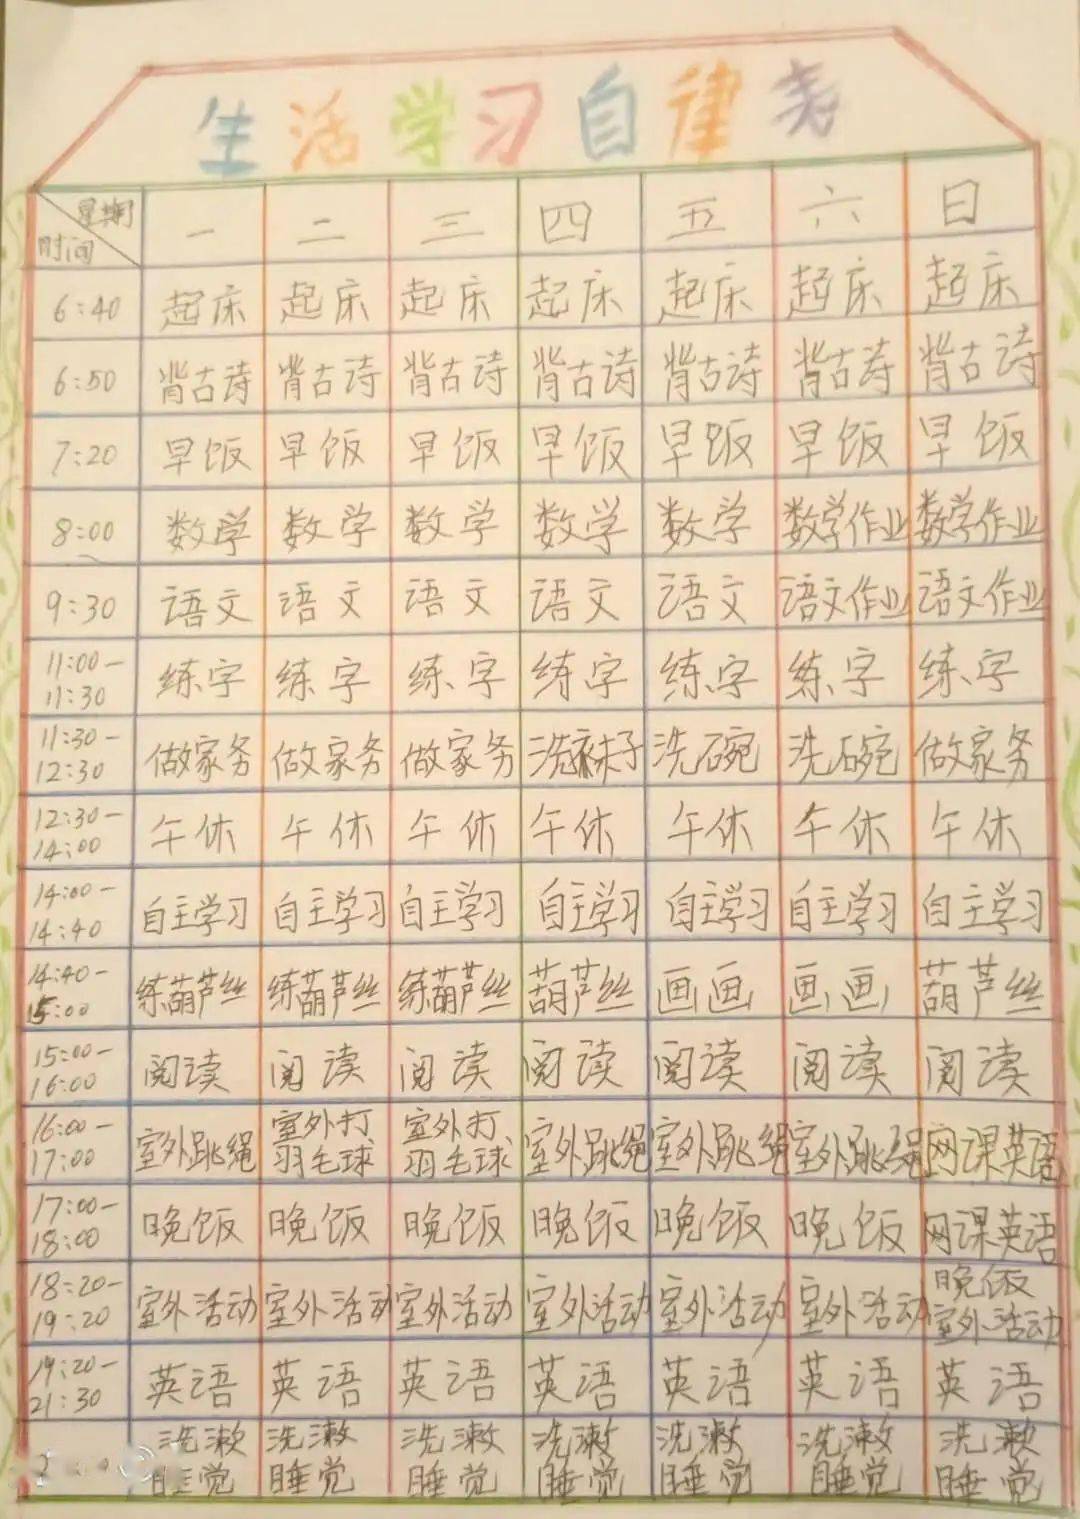 生活学习自律表
星期 时间 一 二 三 四 五 六 日
6:40 起床 起床 起床 起床 起床 起床 起床
6:50 背古诗 背古诗 背古诗 背古诗 背古诗 背古诗 背古诗
7:20 早饭 早饭 早饭 早饭 早饭 早饭 早饭
8:00 数学 数学 数学 数学 数学 数学作业 数学作业
9:30 语文 语文 语文 语文 语文 语文作业 语文作业
11:00-11:30 练字 练字 练字 练字 练字 练字 练字
11:30-12:30 做家务 做家务 做家务 洗袜子 洗碗 洗碗 做家务
12:30-14:00 午休 午休 午休 午休 午休 午休 午休
14:00-14:40 自主学习 自主学习 自主学习 自主学习 自主学习 自主学习 自主学习
14:40-15:00 练葫芦丝 练葫芦丝 练葫芦丝 葫芦丝 画画 画画 葫芦丝
15:00-16:00 阅读 阅读 阅读 阅读 阅读 阅读 阅读
16:00-17:00 室外跳绳 室外打羽毛球 室外打羽毛球 室外跳绳 室外跳绳 室外跳绳 网课英语
17:00-18:00 晚饭 晚饭 晚饭 晚饭 晚饭 晚饭 网课英语
18:20-19:20 室外活动 室外活动 室外活动 室外活动 室外活动 室外活动 晚饭室外活动
19:20-21:30 英语 英语 英语 英语 英语 英语 英语
洗漱睡觉 洗漱睡觉 洗漱睡觉 洗漱睡觉 洗漱睡觉 洗漱睡觉 洗漱睡觉